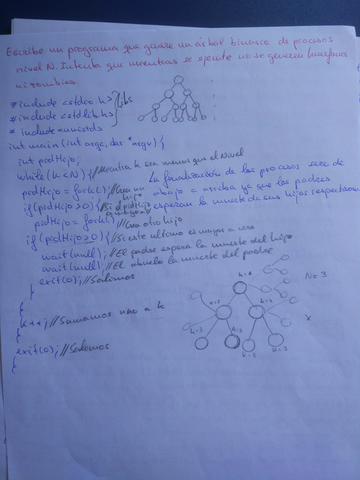 Escribe un programa que genere un árbol binario de procesos
nivel N. Intenta que mientras se ejecute no se generen huérfanos
ni zombies.
#include <stdio.h>
#include <stdlib.h> libs
#include <unistd.h>
int main (int argc, char *argv) {
int pidHijo;
while (k < N) { //Mientra k sea menor que el Nivel
pidHijo = fork(); //Crea un hijo
La finalización de los procesos sera de
if (pidHijo > 0) { //Si el pidHijo
abajo a arriba ya que los padres
esperan la muerte de sus hijos respectivos
pidHijo = fork(); //Crea otro hijo
if (pidHijo > 0) { //Si este ultimo es mayor a cero
wait(null); //El padre espera la muerte del hijo
wait(null); //El abuelo la muerte del padre
exit(0); //Salimos
}
}
k++; //Sumamos uno a k
}
exit(0); //Salimos
}
N = 3
k=2
k=3
k=3
k=3
k=3